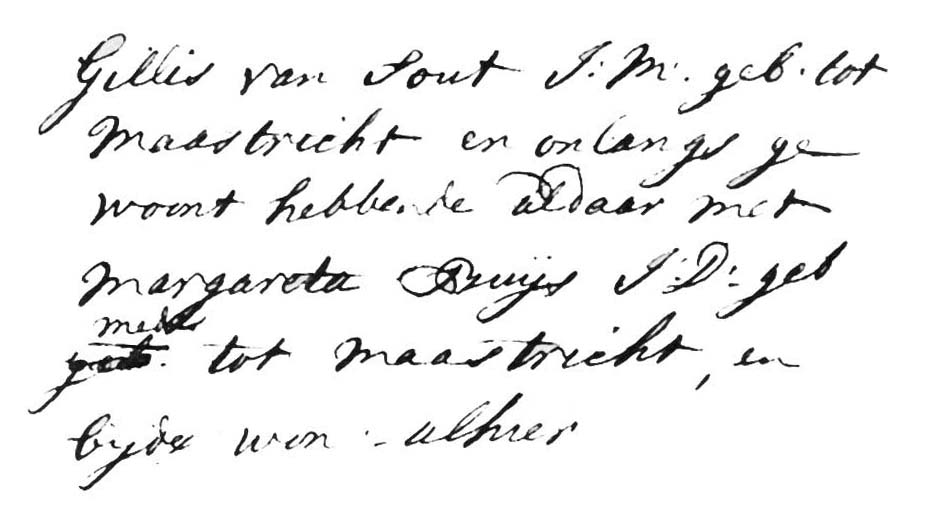 Gillis van Sout J: M: geb. tot
Maastricht en onlangs ge
woont hebbende aldaar met
Margareta Buijs J: D: geb
mede
geb. tot Maastricht, en
byde won - alhier